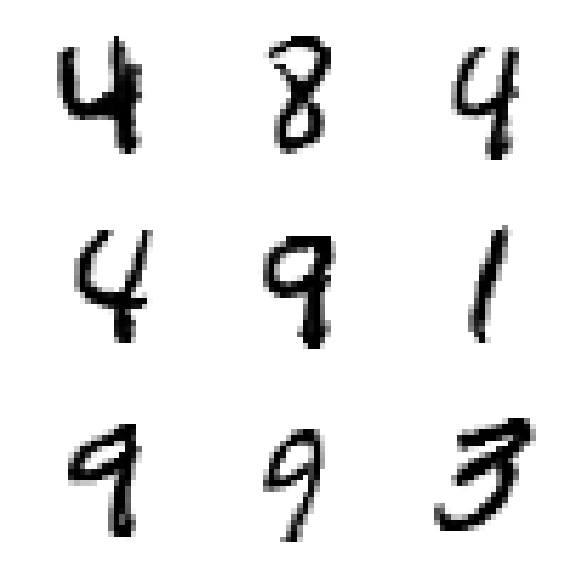 4 8 4
4 9 1
9 9 3